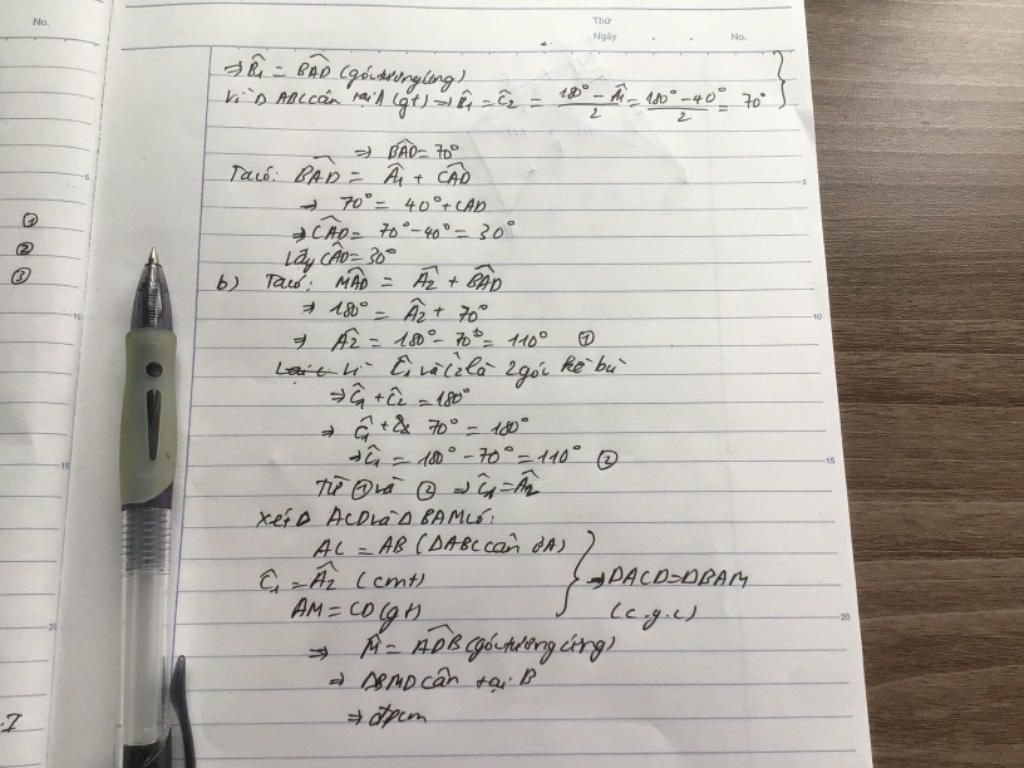 No.
Thứ
Ngày . . No.
⇒ B̂₁ = BAD̂ (góc tương ứng)
Vì Δ ABC cân tại A (gt) ⇒ B̂₁ = Ĉ₂ = (180° − Â₁)/2 = (180° − 40°)/2 = 70°
⇒ BAD̂ = 70°
Ta có: BAD̂ = Â₁ + CAD̂
⇒ 70° = 40° + CAD
⇒ CAD̂ = 70° − 40° = 30°
Vậy CAD̂ = 30°
b) Ta có: MAD̂ = Â₂ + BAD̂
⇒ 180° = Â₂ + 70°
⇒ Â₂ = 180° − 70° = 110° ①
Vì Ĉ₁ và Ĉ₂ là 2 góc kề bù
⇒ Ĉ₁ + Ĉ₂ = 180°
⇒ Ĉ₁ + 70° = 180°
⇒ Ĉ₁ = 180° − 70° = 110° ②
Từ ① và ② ⇒ Ĉ₁ = Â₂
Xét Δ ACD và Δ BAM có:
AC = AB (ΔABC cân ở A)
Ĉ₁ = Â₂ (cmt) ⇒ ΔACD = ΔBAM
AM = CD (gt) (c.g.c)
⇒ M̂ = ADB̂ (góc tương ứng)
⇒ ΔBMD cân tại B
⇒ đpcm
①
②
③
5
10
15
20
5
15